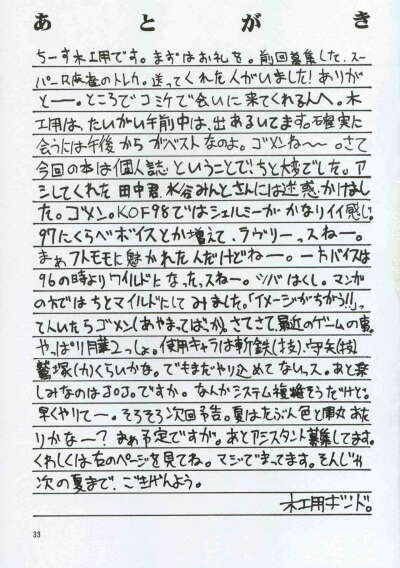 あとがき
ちーす木工用です。まずはお礼を。前回募集した、スー
パー口座のトレカ。送ってくれた人がいました！ありが
とーー。ところでコミケで会いに来てくれる人へ。木
工用は、たいがい午前中は、出あるいてます。確実に
会うには午後からがベストなのよ。ゴメンねー〜。さて
今回の本は個人誌ということで、ちと大変でした。ア
シしてくれた田中君、水谷みんとさんには迷惑かけまし
た。ゴメン。KOF98ではシェルミーがかなりイイ感じ。
97にくらべボイスとか増えて、ラヴリーっスねー。
まぁ、フトモモに魅かれたんだけどねー。一方バイスは
96の時よりワイルドになったっスねー。シバはくし。マンガ
の方ではちとマイルドにしてみました。「イメージがちがう!!」っ
て人いたらゴメン(あやまってばっか)。さてさて、最近のゲームの事。
やっぱり月華2っしょ。使用キャラは斬鉄(技)、守矢(技)
鷲塚(力)くらいかな。でもまだやり込めてないっス。あと楽
しみなのはJOJO。ですか。なんかシステム複雑そうだけど。
早くやりてー。そろそろ次回予告。夏はたぶん色と用丸あた
りかな〜？まぁ予定ですが。あとアシスタント募集してます。
くわしくは右のページを見てね。マジでまってます。そんじゃ
次の夏まで、ごきげんよう。
木工用ボンド。
33